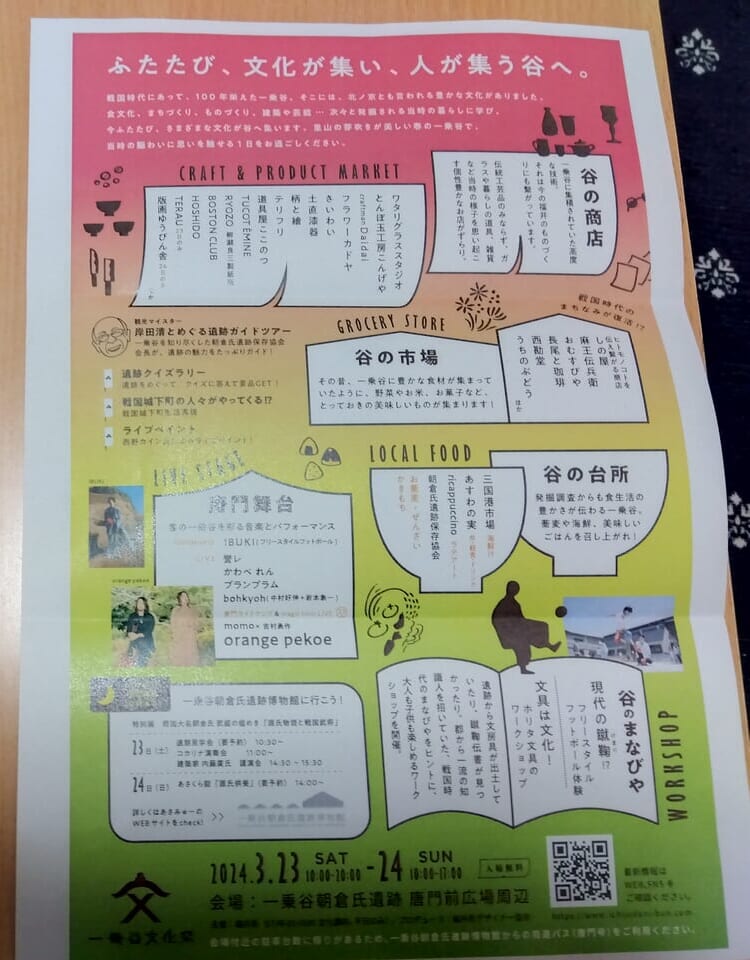 ふたたび、文化が集い、人が集う谷へ。
戦国時代にあって、100年栄えた一乗谷。そこには、北ノ京とも言われる豊かな文化がありました。
食文化、まちづくり、ものづくり、建築や芸能…次々と発掘される当時の暮らしに学び、
今ふたたび、さまざまな文化が谷へ集います。里山の芽吹きが美しい春の一乗谷で、
当時の賑わいに思いを馳せる1日をお過ごしください。
CRAFT & PRODUCT MARKET
谷の商店
一乗谷に集積されていた高度
な技術。
それは今の福井のものづく
りにも繋がっています。
伝統工芸品のみならず、ガ
ラスや暮らしの道具、雑貨
など当時の様子を思い起こ
す個性豊かなお店がずらり。
ワタリグラススタジオ
とんぼ玉工房こんげや
craftman Daidai
フラワーカドヤ
さいわい
土直漆器
柄と繪
テリフリ
道具屋ここのつ
TUCOT EMINE
RYOZO 柳瀬良三製紙所
BOSTON CLUB
HOSHIDO
TERAD 23日のみ
版画ゆうびん舎 24日のみ
ほか
戦国時代の
まちなみが復活!?
観光マイスター
岸田清とめぐる遺跡ガイドツアー
一乗谷を知り尽くした朝倉氏遺跡保存協会
会長が、遺跡の魅力をたっぷりガイド!
遺跡クイズラリー
遺跡をめぐって、クイズに答えて景品GET!
戦国城下町の人々がやってくる!?
戦国城下町生活再現
ライブペイント
GROCERY STORE
谷の市場
その昔、一乗谷に豊かな食材が集まって
いたように、野菜やお米、お菓子など、
とっておきの美味しいものが集まります!
ヒトモノコトを
伝え繋がる商店
しの屋
麻王伝兵衛
おむすびや
長尾と珈琲
西勘堂
うちのぶどう
ほか
LOCAL FOOD
谷の台所
発掘調査からも食生活の
豊かさが伝わる一乗谷。
蕎麦や海鮮、美味しい
ごはんを召し上がれ!
三国港市場 海鮮!?
あすわの実
ricappuccino ラテアート
朝倉氏遺跡保存協会
お蕎麦・ぜんざい
かきもち
LIVE STAGE
唐門舞台
春の一乗谷を彩る音楽とパフォーマンス
IBUKI(フリースタイルフットボール)
LIVE
誓レ
かわべ れん
ブランプラム
bohkyoh(中村好伸+岩本象一)
momo×吉村勇作
orange pekoe
orange pekoe
WORKSHOP
谷のまなびや
現代の蹴鞠!?
フリースタイル
フットボール体験
文具は文化!
ホリタ文具の
ワークショップ
遺跡から文房具が出土して
いたり、蹴鞠伝書が見つ
かったり、都から一流の知
識人を招いていた、戦国時
代のまなびやをヒントに、
大人も子供も楽しめるワーク
ショップを開催。
一乗谷朝倉氏遺跡博物館に行こう!
23日(土) 遺跡見学会(要予約) 10:30〜
コカリナ演奏会 11:00〜
建築家 内藤廣氏 講演会 14:30〜15:30
24日(日) あさくら館「源氏供養」(要予約) 14:00〜
詳しくはあさみゅーの
WEBサイトをcheck! >>
一乗谷朝倉氏遺跡博物館
2024.3.23 SAT 10:00-20:00 -24 SUN 10:00-17:00 入場無料
会場:一乗谷朝倉氏遺跡 唐門前広場周辺
最新情報は
WEB,SNSを
ご確認ください。
一乗谷文化祭